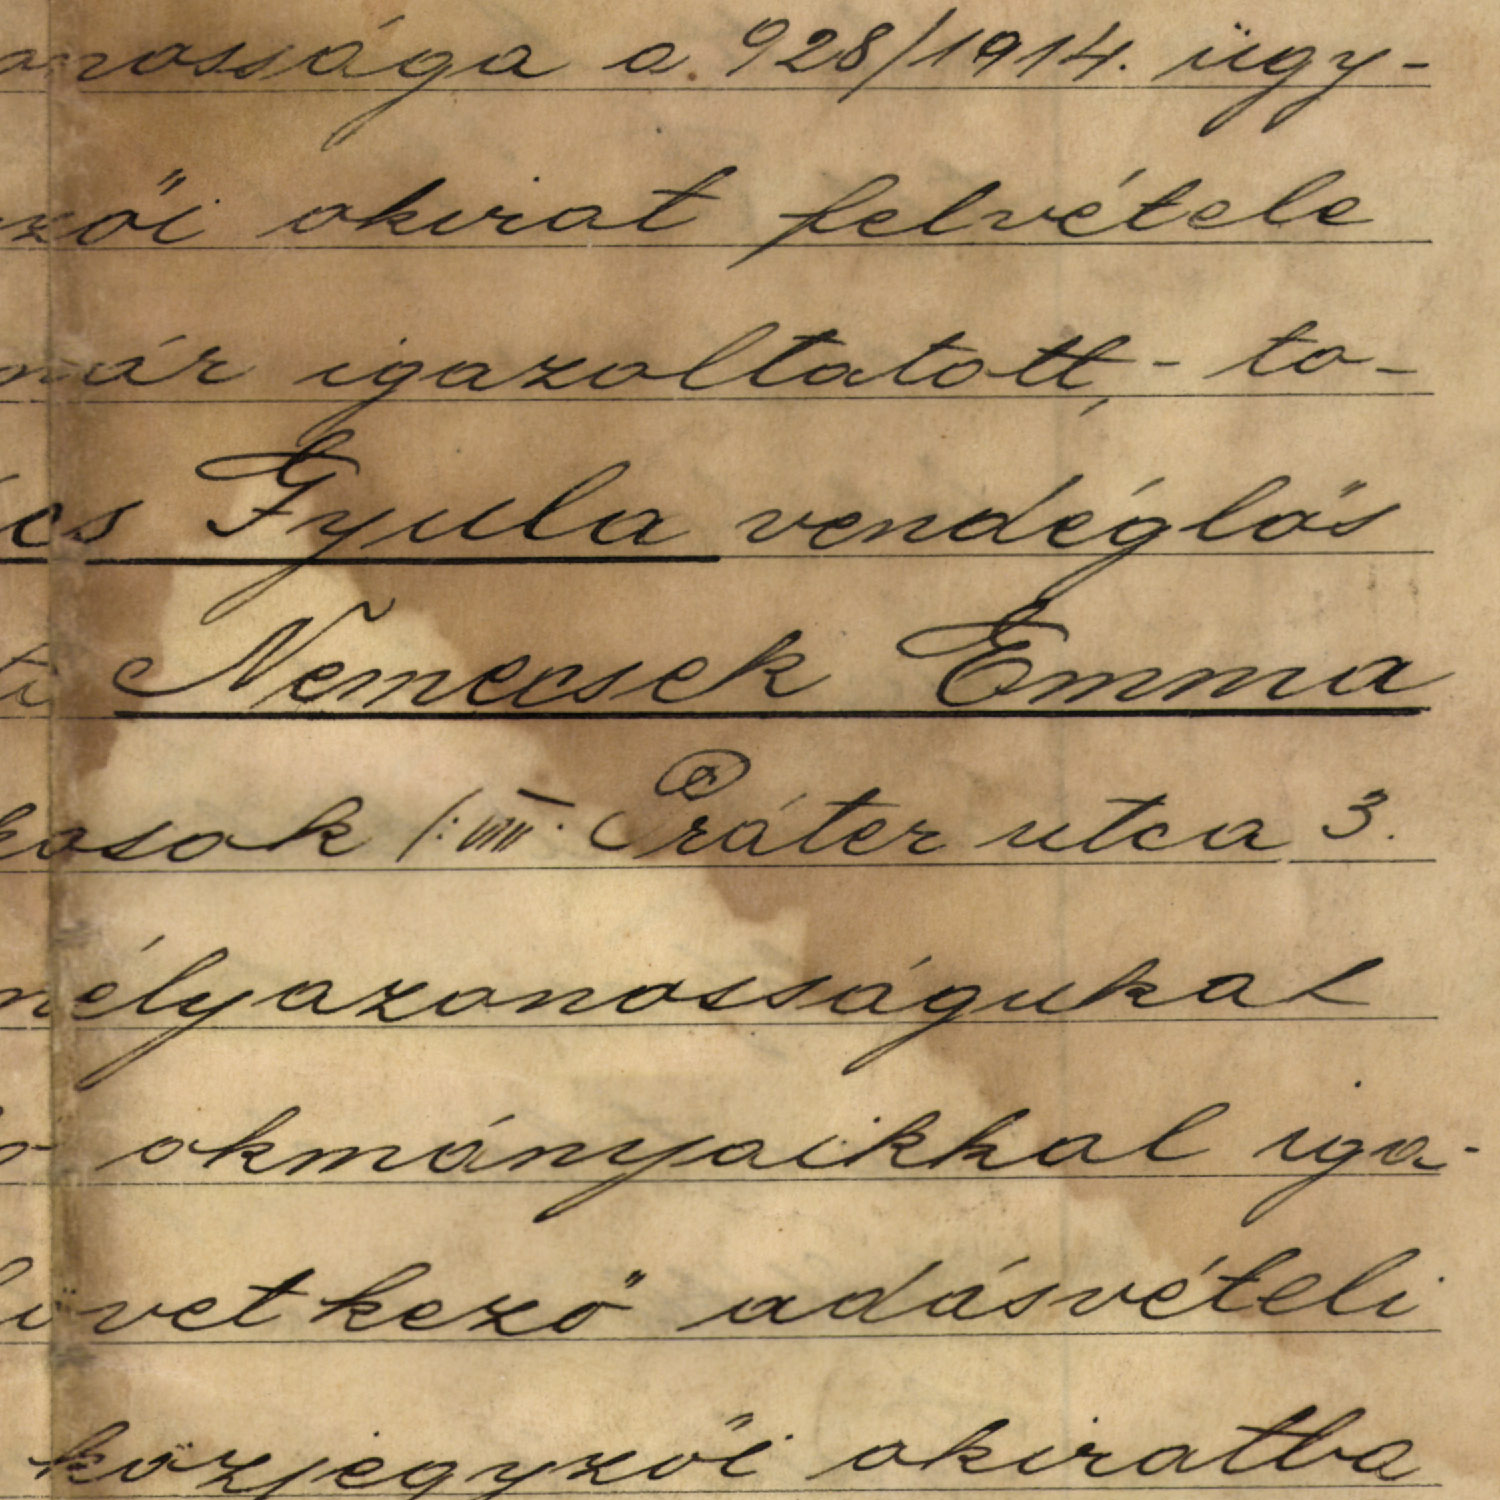 onossága a 928/1914. ügy-
zői okirat felvétele
már igazoltatott,- to-
cs Gyula vendéglős
Nemecsek Emma
kosok (: VIII. Práter utca 3.
mélyazonosságukat
okmányaikkal iga-
következő adásvételi
közjegyzői okiratba